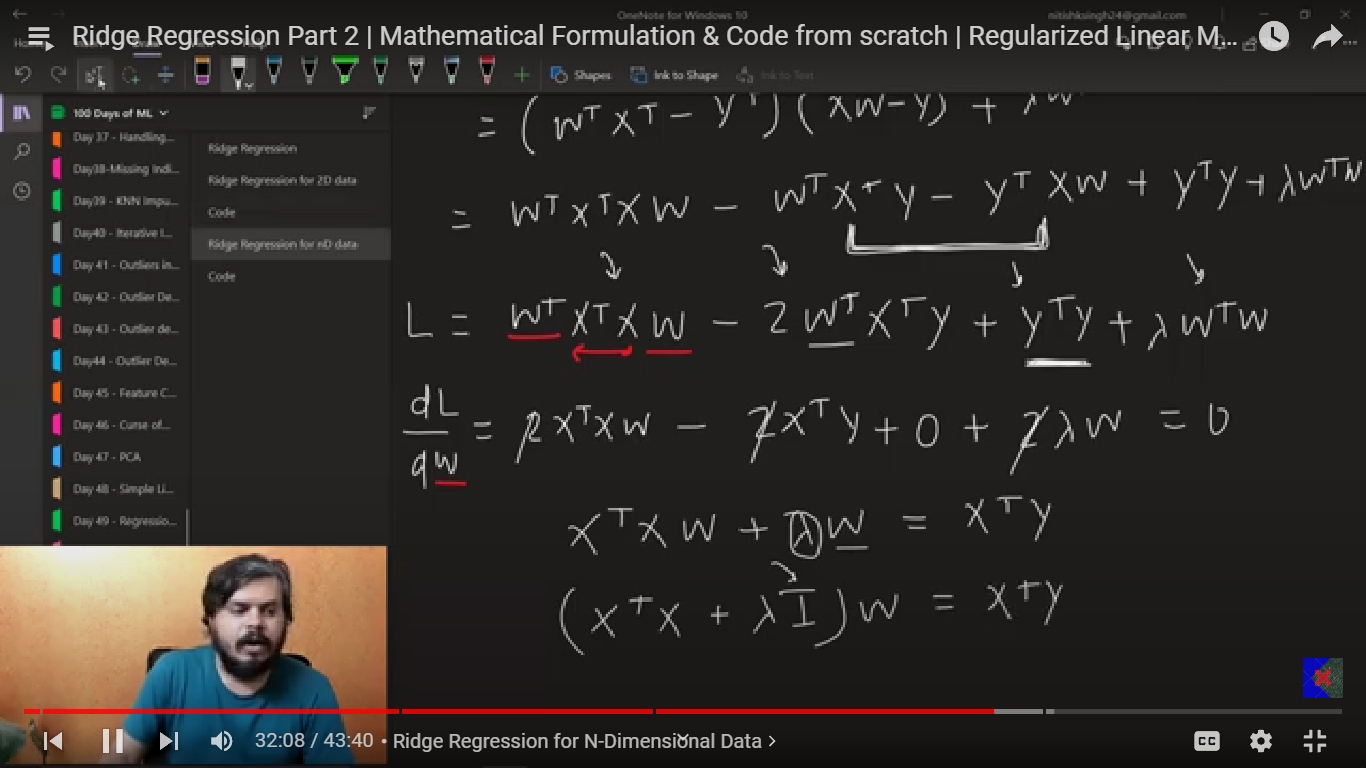 OneNote for Windows 10
nitishksingh24@gmail.com
Ridge Regression Part 2 | Mathematical Formulation & Code from scratch | Regularized Linear M...
Shapes
Ink to Shape
Ink to Text
100 Days of ML
Day 37 - Handling...
Day38-Missing Indi...
Day39 - KNN Impu...
Day40 - Iterative I...
Day 41 - Outliers in...
Day 42 - Outlier De...
Day 43 - Outlier de...
Day44 - Outlier De...
Day 45 - Feature C...
Day 46 - Curse of...
Day 47 - PCA
Day 48 - Simple Li...
Day 49 - Regressio...
Ridge Regression
Ridge Regression for 2D data
Code
Ridge Regression for nD data
Code
= (wᵀxᵀ - yᵀ)(xw-y) + λw
= wᵀxᵀxw - wᵀxᵀy - yᵀxw + yᵀy + λwᵀw
L = wᵀxᵀxw - 2wᵀxᵀy + yᵀy + λwᵀw
dL/dw = 2xᵀxw - 2xᵀy + 0 + 2λw = 0
xᵀxw + λw = xᵀy
(xᵀx + λI)w = xᵀy
32:08 / 43:40 • Ridge Regression for N-Dimensional Data >
CC